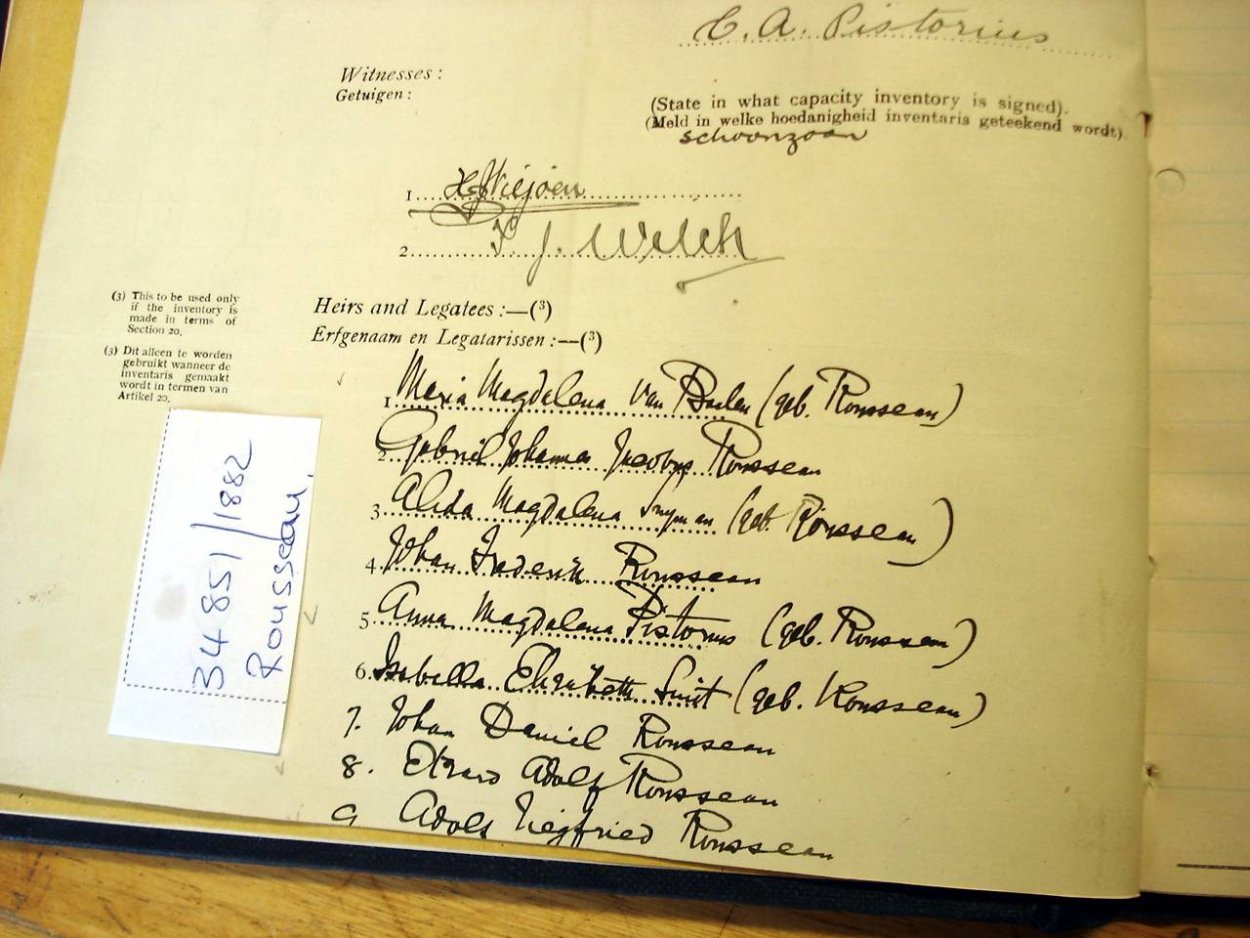 C. A. Pistorius
Witnesses:
Getuigen:
(State in what capacity inventory is signed).
(Meld in welke hoedanigheid inventaris geteekend wordt).
schoonzoon
1 Viljoen
2 J. Welch
(3) This to be used only
if the inventory is
made in terms of
Section 20.
(3) Dit alleen te worden
gebruikt wanneer de
inventaris gemaakt
wordt in termen van
Artikel 20.
Heirs and Legatees:—(3)
Erfgenaam en Legatarissen:—(3)
1 Maria Magdalena van Baalen (geb. Rousseau)
2 Gabriel Johannes Jacobus Rousseau
3 Alida Magdalena Snyman (geb. Rousseau)
4. Johan Frederik Rousseau
5 Anna Magdalena Pistorius (geb. Rousseau)
6. Isabella Elizabeth Smit (geb. Rousseau)
7. Johan Daniel Rousseau
8. Adolf Rousseau
9 Adolf Siegfried Rousseau
34851/1882
Rousseau.